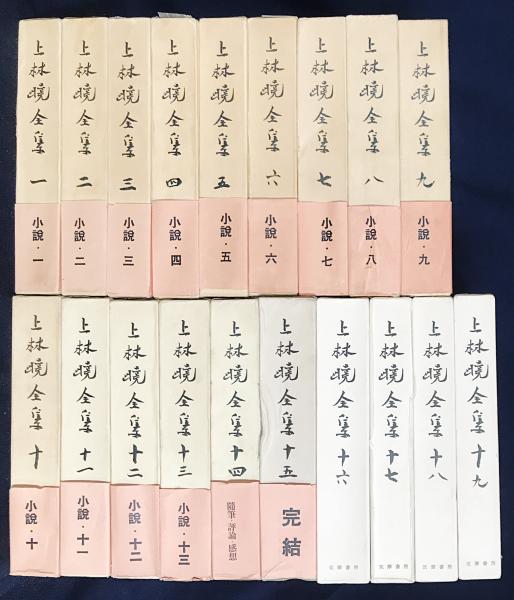 上林暁全集 一
小説・一
上林暁全集 二
小説・二
上林暁全集 三
小説・三
上林暁全集 四
小説・四
上林暁全集 五
小説・五
上林暁全集 六
小説・六
上林暁全集 七
小説・七
上林暁全集 八
小説・八
上林暁全集 九
小説・九
上林暁全集 十
小説・十
上林暁全集 十一
小説・十一
上林暁全集 十二
小説・十二
上林暁全集 十三
小説・十三
上林暁全集 十四
随筆・評論・感想
上林暁全集 十五
完結
上林暁全集 十六
筑摩書房
上林暁全集 十七
筑摩書房
上林暁全集 十八
筑摩書房
上林暁全集 十九
筑摩書房